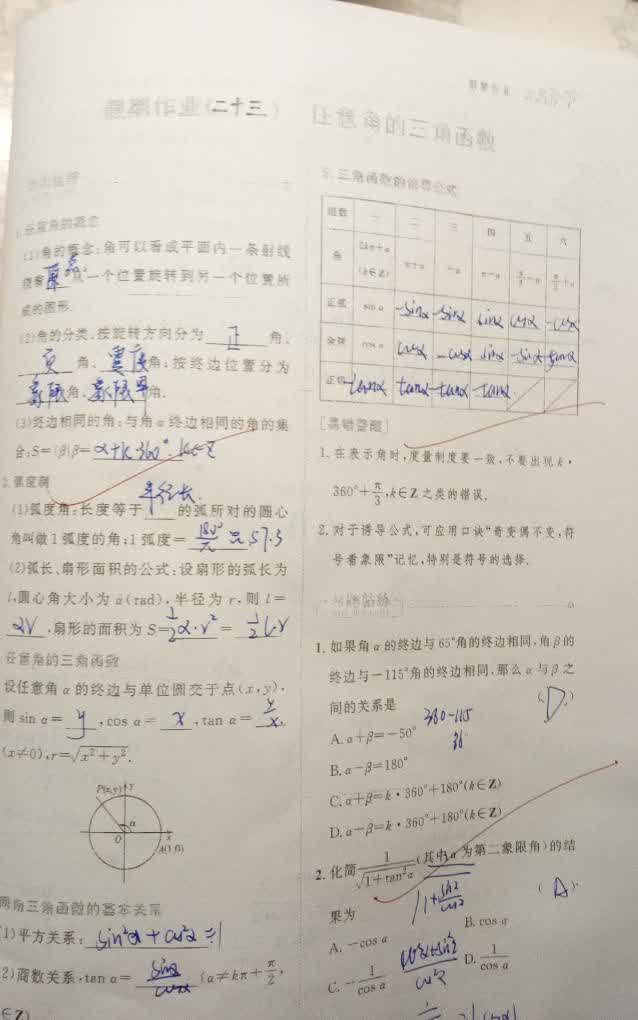 假期作业(二十三) 任意角的三角函数
1.任意角的概念
(1)角的概念:角可以看成平面内一条射线
绕着 原点 从一个位置旋转到另一个位置所
成的图形.
(2)角的分类,按旋转方向分为 正 角、
负 角、零度角;按终边位置分为
象限角、象限界角.
(3)终边相同的角:与角α终边相同的角的集
合:S={β|β=α+k·360° k∈Z
2.弧度制
半径长.
(1)弧度角:长度等于 的弧所对的圆心
角叫做1弧度的角;1弧度= 180°/π ≈57.3
(2)弧长、扇形面积的公式:设扇形的弧长为
l,圆心角大小为α(rad),半径为r,则l=
αr,扇形的面积为S=1/2α·r²=1/2l·r
任意角的三角函数
设任意角α的终边与单位圆交于点(x,y),
则sin α= y ,cos α= x ,tan α= y/x.
(x≠0),r=√x²+y².
P(x,y) y
α
O x
A(1,0)
同角三角函数的基本关系
(1)平方关系: sin²α+cos²α=1
(2)商数关系,tan α= sinα/cosα (α≠kπ+π/2,
∈Z)
5.三角函数的诱导公式
组数 一 二 三 四 五 六
角 2kπ+α(k∈Z) π+α -α π-α π/2-α π/2+α
正弦 sin α -sinα -sinα sinα cosα -cosα
余弦 cos α cosα -cosα sinα -sinα
正切 tanα tanα -tanα -tanα
[易错警醒]
1.在表示角时,度量制度要一致,不要出现k·
360°+π/3,k∈Z之类的错误.
2.对于诱导公式,可应用口诀“奇变偶不变,符
号看象限”记忆,特别是符号的选择.
1.如果角α的终边与65°角的终边相同,角β的
终边与-115°角的终边相同,那么α与β之
间的关系是 (D.)
360-115
A.α+β=-50°
B.α-β=180°
C.α+β=k·360°+180°(k∈Z)
D.α-β=k·360°+180°(k∈Z)
2.化简1/√1+tan²α(其中α为第二象限角)的结
果为 (A)
1+sin²/cos²
A.-cos α B.cos α
C.-1/cos α D.1/cos α
cos²α+sin²/cos²α